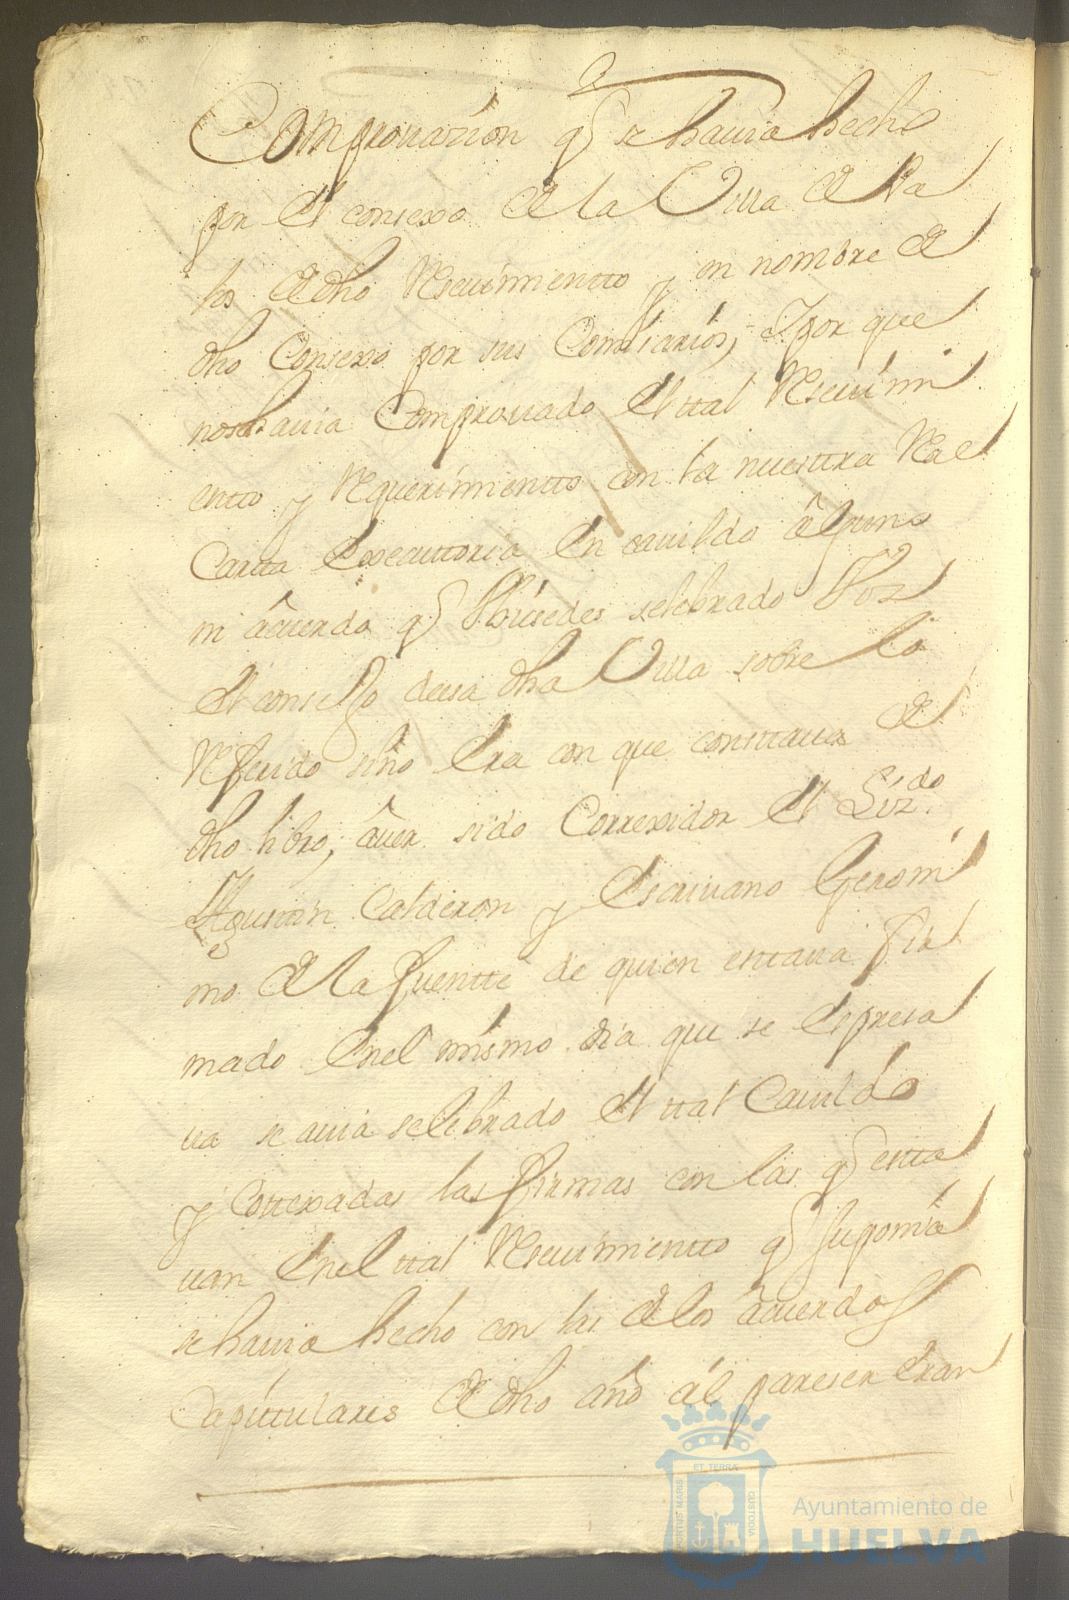 Comprovazion q̃ se havia hecho
por el consexo de la Villa de Pa
los de dho Reseuimientto y en nombre de
dho Consexo por sus Comisarios, Y por que
nose hauia Comprouado el ttal Reseuimi
entto y Requerimientto con la nuestra Real
Cartta executtoria en cauildo alguno
ni âcuerdo q̃ hubiesedes selebrado Por
el consejo desa dha Villa sobre lo
Referido sino era con que consttaua de
dho libro, âuer sido Correxidor el Lizdo
Agusttin Calderon y escriuano Geroni
mo de la fuentte de quien esttaua fir
mado enel mismo dia que se espresa
ua se auia selebrado el ttal Cauildo
y Cottexadas las firmas con las q̃ estta
uan enel ttal Reseuimientto q̃ suponia
se hauia hecho con las de los âcuerdos
Capittulares de dho año al pareser eran
PORTUS MARIS
ET TERRA
CUSTODIA
Ayuntamiento de
HUELVA